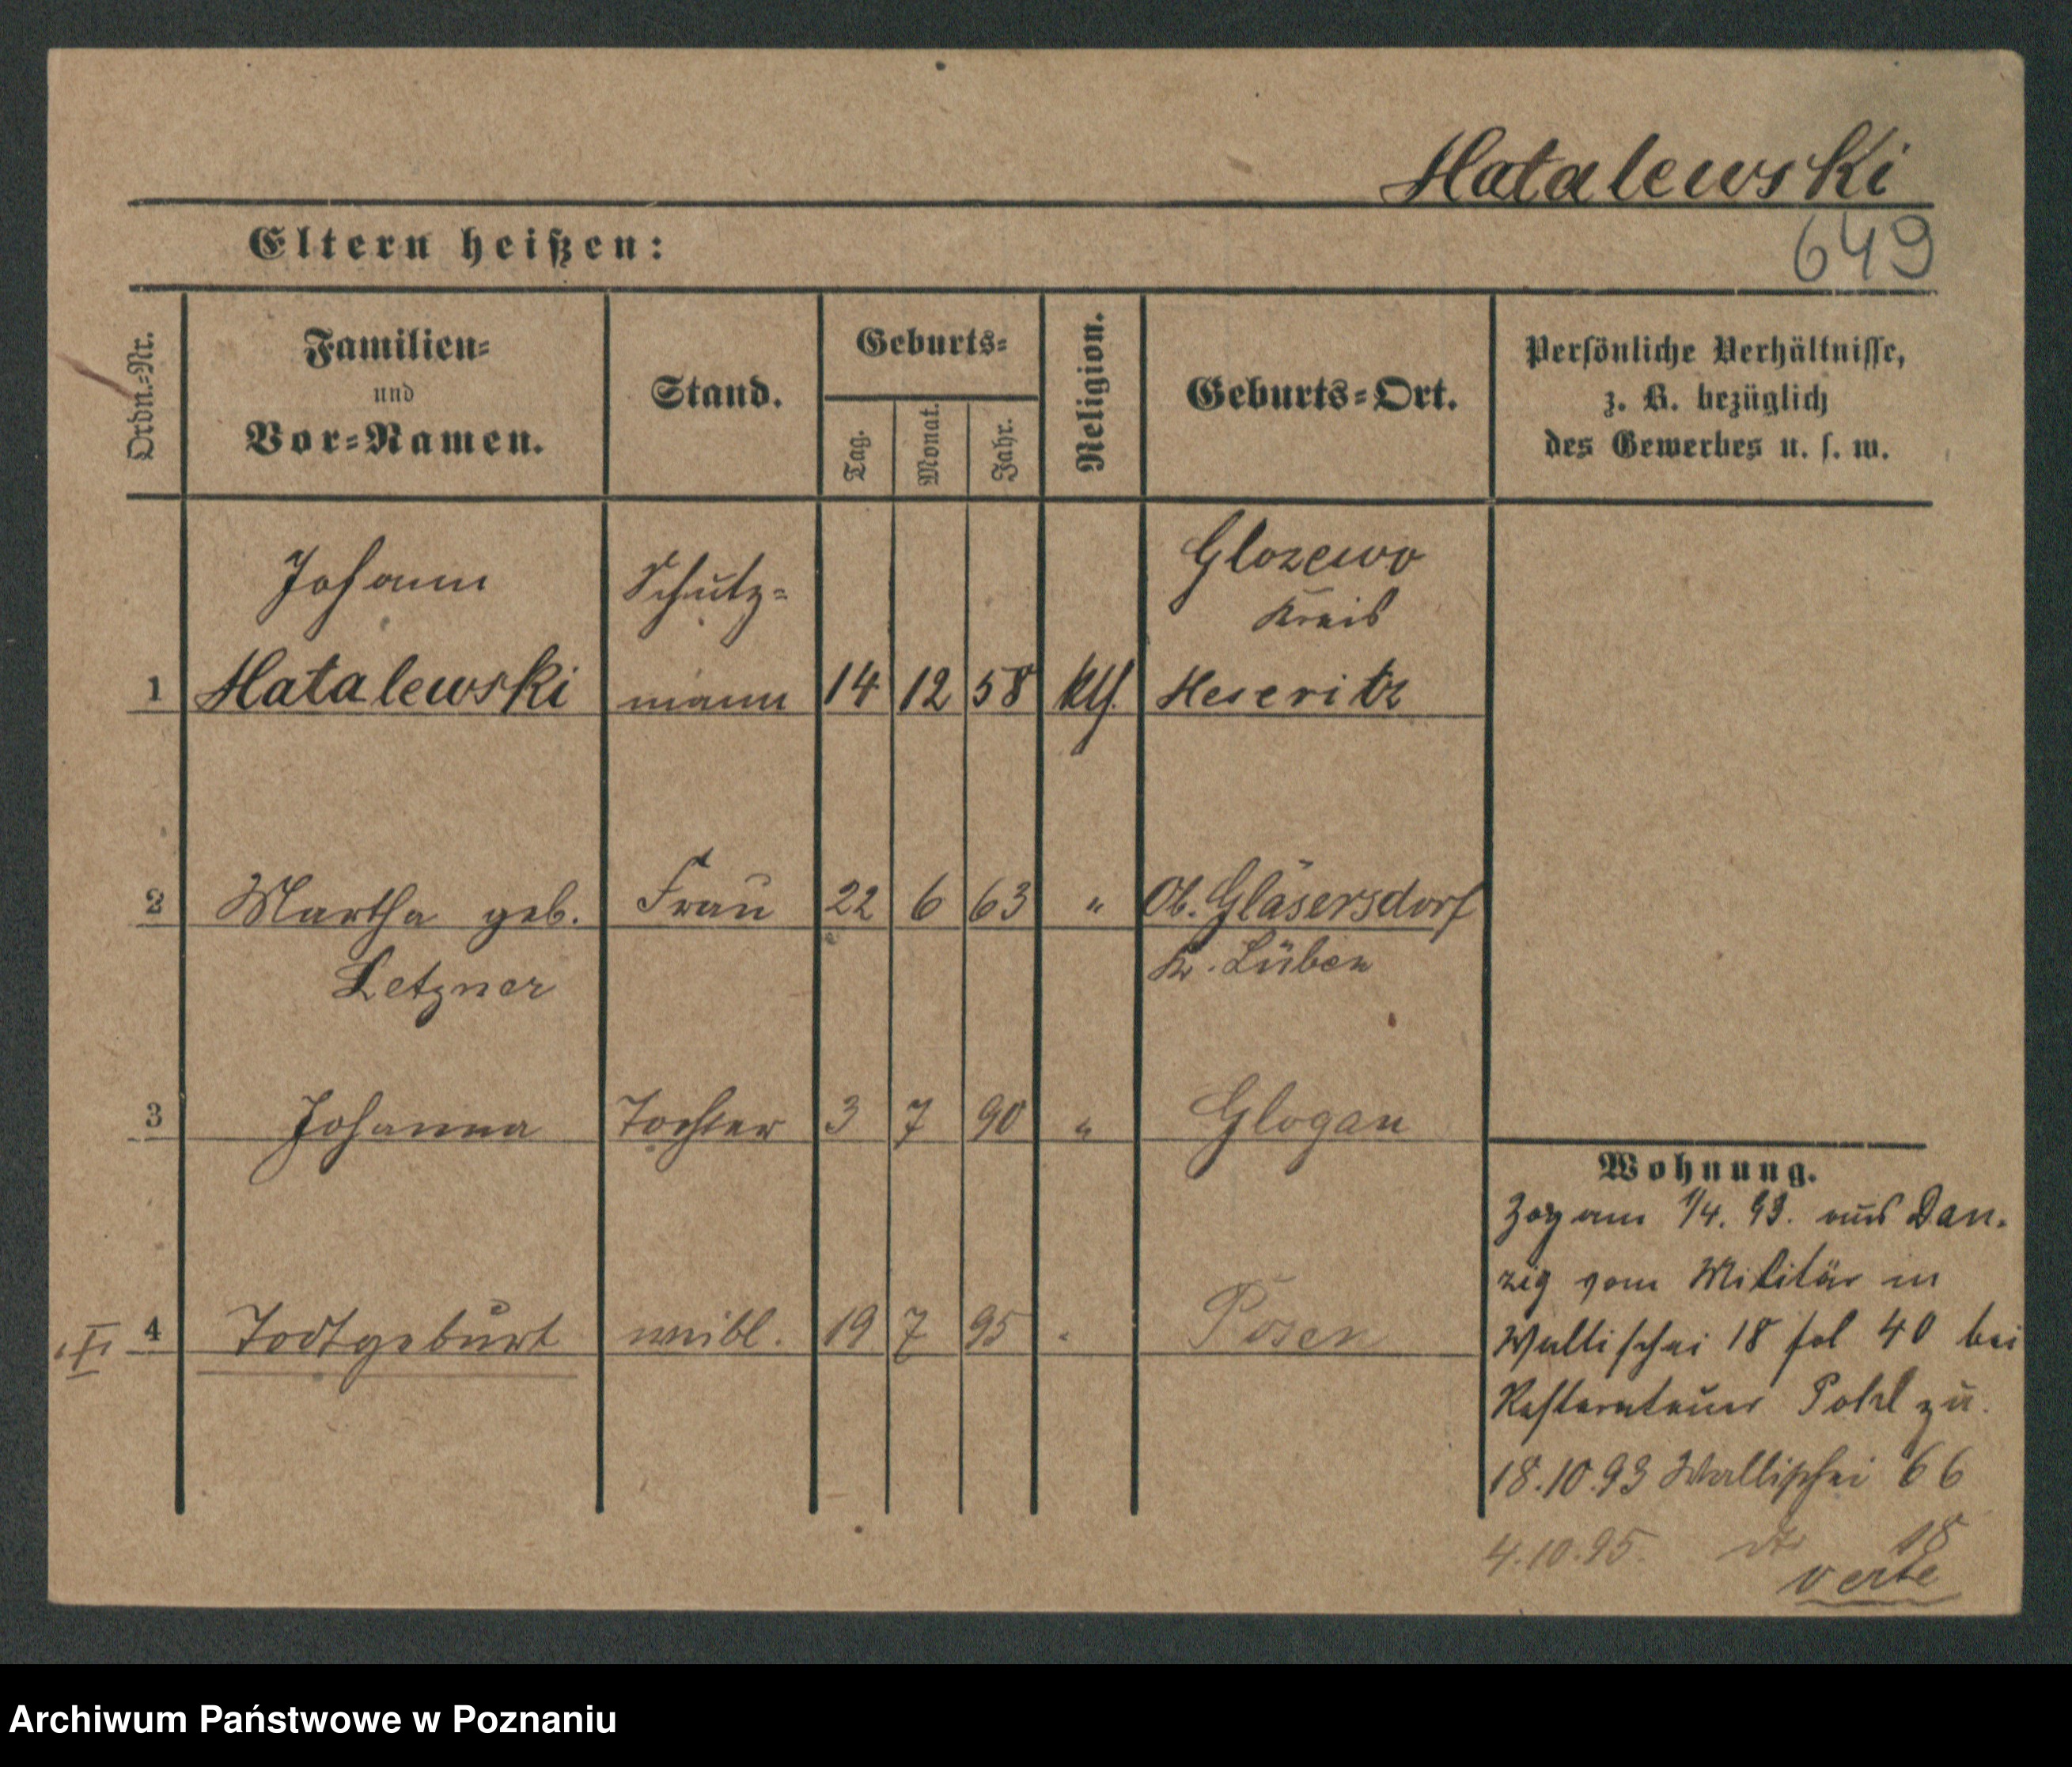 Hatalewski
649
Eltern heißen:
Ordn.=Nr. Familien= und Vor=Namen. Stand. Geburts= Tag. Monat. Jahr. Religion. Geburts=Ort. Persönliche Verhältnisse, z. B. bezüglich des Gewerbes u. s. w.
Johann Schutz= Glozewo
Kreis
1 Hatalewski mann 14 12 58 kth. Meseritz
2 Martha geb. Frau 22 6 63 " Ob. Gläsersdorf
Letzner Kr. Lüben
3 Johanna Tochter 3 7 90 " Glogau
Wohnung.
Zog am 1/4. 93. aus Dan-
zig vom Militär in
4 Todtgeburt weibl. 19 7 95 " Posen
Wallischei 18 fol 40 bei
Restaurateur Pohl zu.
18.10.93 Wallischei 66
4.10.95. dto 18
verte
Archiwum Państwowe w Poznaniu